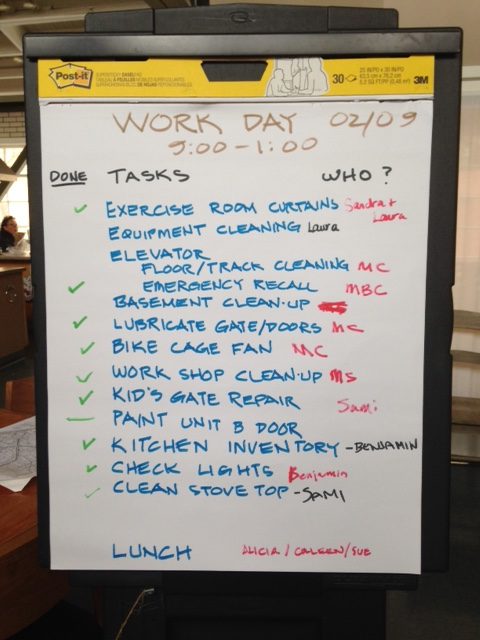 Post-it
30
3M
WORK DAY 02/09
9:00-1:00
DONE TASKS WHO?
✓ EXERCISE ROOM CURTAINS Sandra + Laura
EQUIPMENT CLEANING Laura
ELEVATOR
FLOOR/TRACK CLEANING MC
✓ EMERGENCY RECALL MBC
BASEMENT CLEAN-UP
✓ LUBRICATE GATE/DOORS MC
✓ BIKE CAGE FAN MC
✓ WORK SHOP CLEAN-UP MS
✓ KID'S GATE REPAIR Sami
— PAINT UNIT B DOOR
✓ KITCHEN INVENTORY -BENJAMIN
✓ CHECK LIGHTS Benjamin
✓ CLEAN STOVE TOP -SAMI
LUNCH ALICIA / COLEEN/SUE